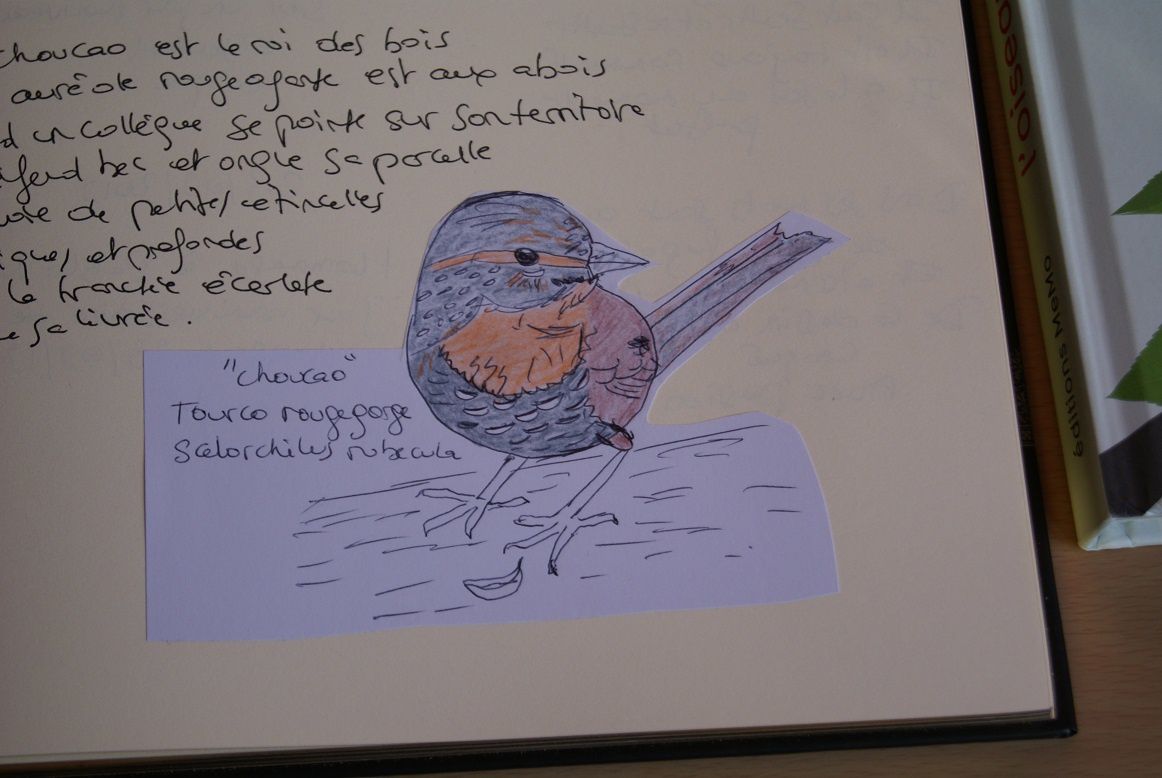 choucao est le roi des bois
auréole rougegorge est aux abois
un collègue se pointe sur son territoire
bec et ongle sa parcelle
de petites etincelles
et profondes
la tranchée écarlate
sa livrée.
"choucao"
Tourco rougegorge
Scelorchilus rubecula
l'oiseau
éditions MeMo